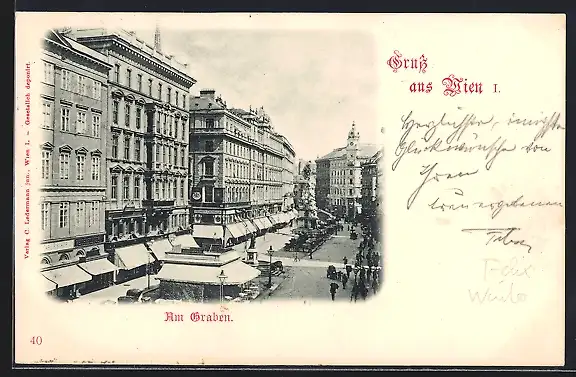 Gruß
aus Wien I.
Herzlichste, innigste
Glückwünsche von
Ihrem
treu ergebenen
Felix
Am Graben.
40
Verlag C. Ledermann jun., Wien I. - Gesetzlich deponirt.